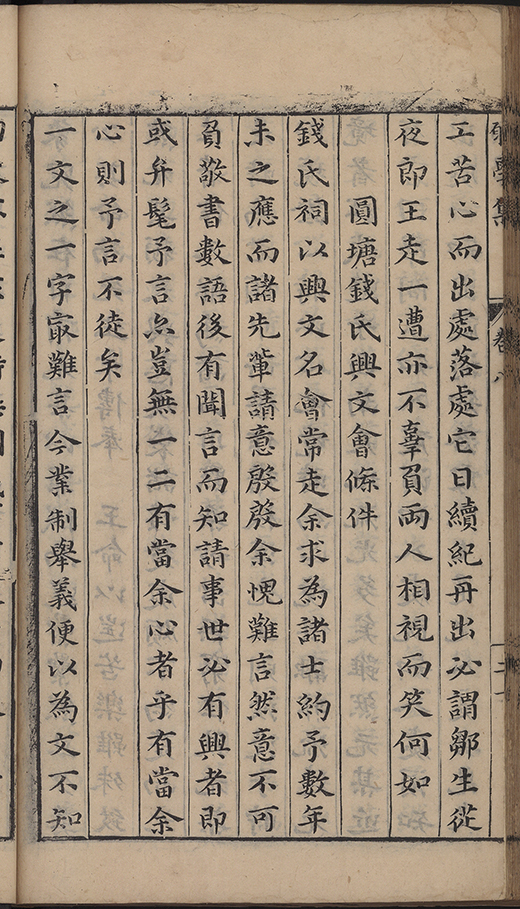 學集
卷八
工苦心而出處落處它日續紀再出必謂鄒生從
夜即王走一遭亦不辜負兩人相視而笑何如
圓塘錢氏興文會條件
錢氏祠以興文名會常走余求為諸士約予數年
未之應而諸先輩請意殷殷余愧難言然意不可
負敬書數語後有聞言而知請事世必有興者即
或弁髦予言尒豈無一二有當余心者乎有當余
心則予言不徒矣
一文之一字㝡難言今業制舉義便以為文不知